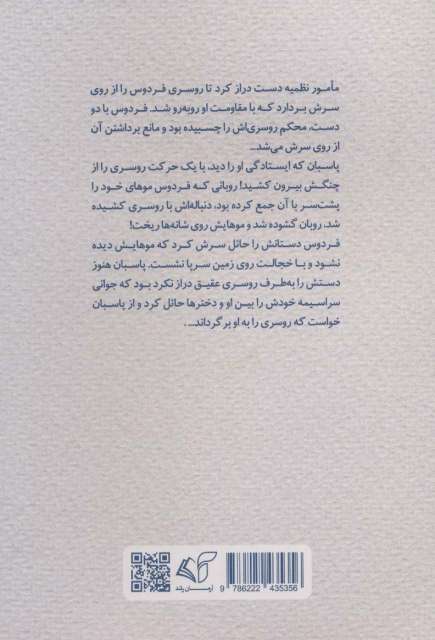 مأمور نظمیه دست دراز کرد تا روسری فردوس را از روی
سرش بردارد که با مقاومت او روبه‌رو شد. فردوس با دو
دست، محکم روسری‌اش را چسبیده بود و مانع برداشتن آن
از روی سرش می‌شد...
پاسبان که ایستادگی او را دید، با یک حرکت روسری را از
چنگش بیرون کشید! روبانی که فردوس موهای خود را
پشت‌سر با آن جمع کرده بود، دنباله‌اش با روسری کشیده
شد. روبان گشوده شد و موهایش روی شانه‌ها ریخت!
فردوس دستانش را حائل سرش کرد که موهایش دیده
نشود و با خجالت روی زمین سرپا نشست. پاسبان هنوز
دستش را به‌طرف روسری عقیق دراز نکرد بود که جوانی
سراسیمه خودش را بین او و دخترها حائل کرد و از پاسبان
خواست که روسری را به او برگرداند... .
آرمان رشد
9 786222 435356